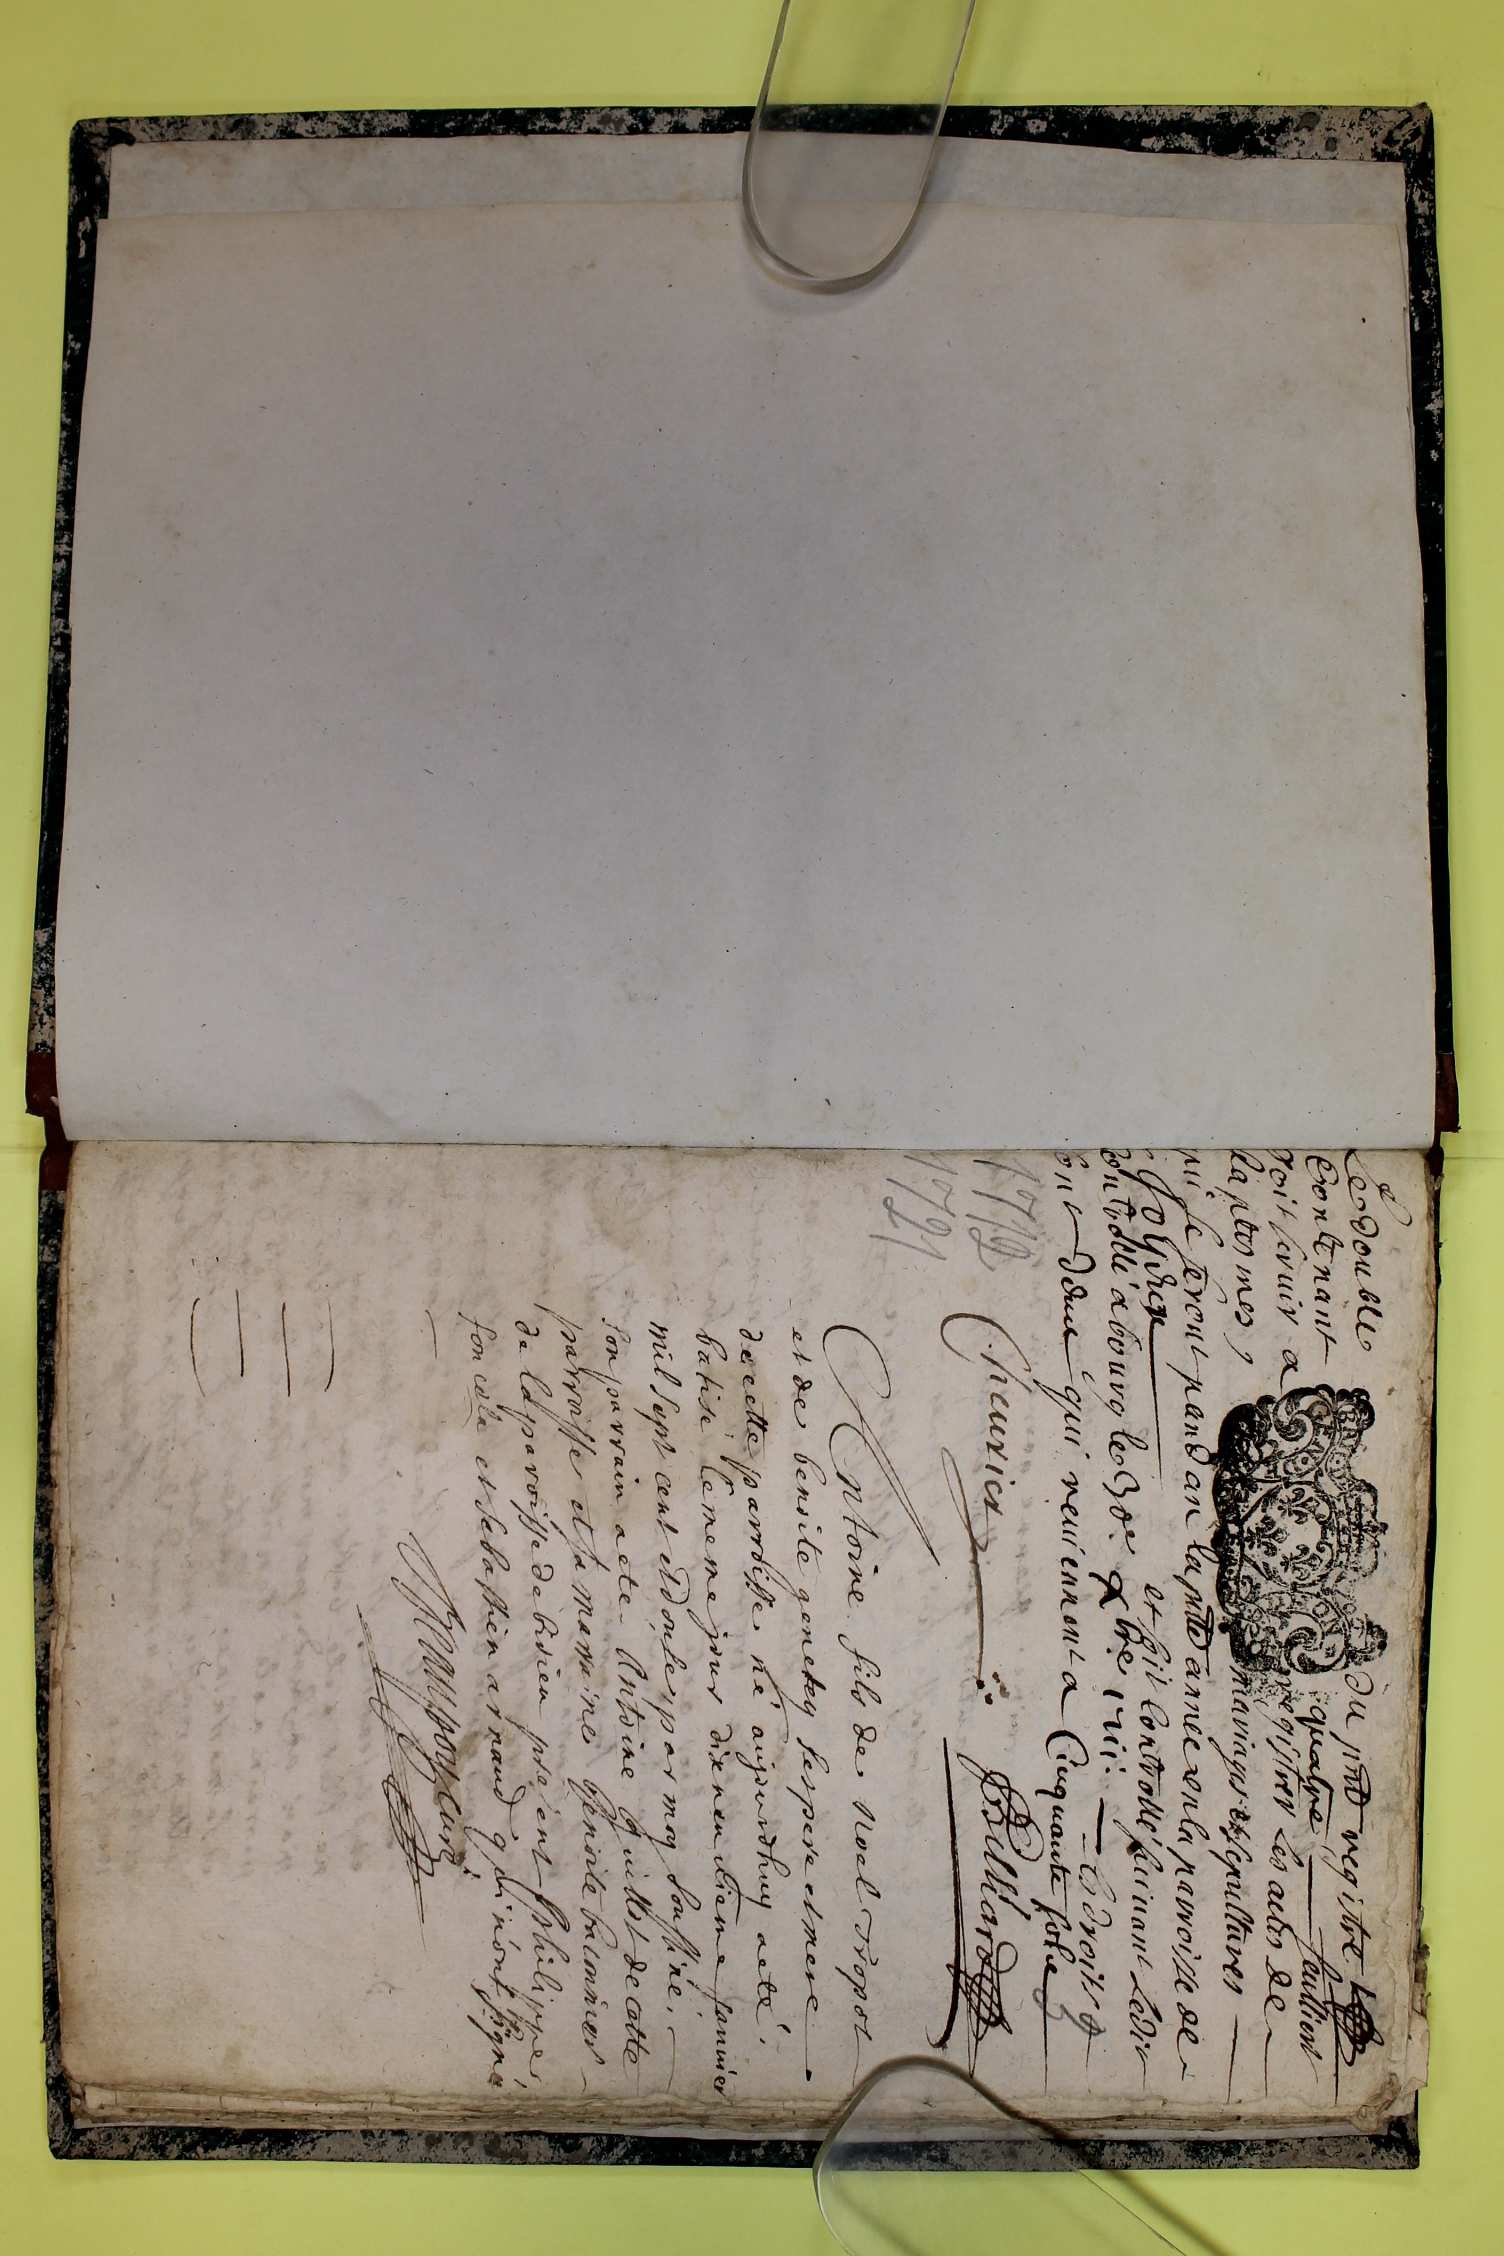 Le double du pnt registre
Contenant quatre feuillets
doit servir a registrer les actes de
baptesmes, mariages et sepultures
qui se feront pandant la pnte année en la parroisse de
Joyeux et soit controllé suivant ledit
controllé a bourg le 30e xbre 1711 — Les droits
ont deux qui reviennent a Cinquante sols
Chevrier Billiard
1712
1721
Antoine fils de Noel tropot
et de benoite genetey ses pere et mere
de cette parroisse né aujourdhuy a eté
batisé le meme jour dixneuvieme janvier
mil sept cent et douze par moy soussiné
son parrain a ete Antoine Guillot de cette
parroisse et sa marraine benoite
de la parroisse de birieu present philippe
son et sebastien arnaud qui n'ont signé
curé